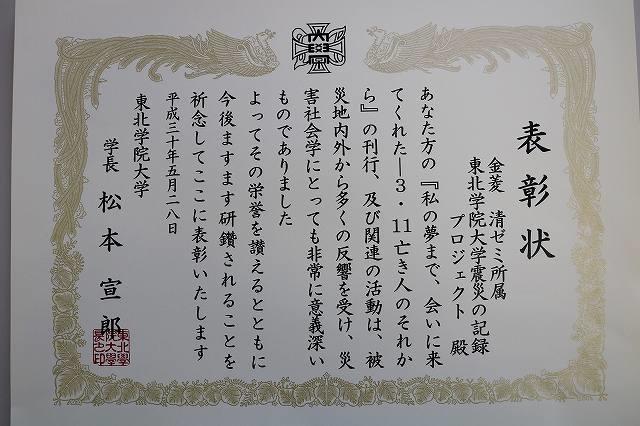 表彰状
金菱 清ゼミ所属
東北学院大学震災の記録
プロジェクト 殿
あなた方の『私の夢まで、会いに来
てくれた―3・11亡き人のそれか
ら』の刊行、及び関連の活動は、被
災地内外から多くの反響を受け、災
害社会学にとっても非常に意義深い
ものでありました
よってその栄誉を讃えるとともに
今後ますます研鑽されることを
祈念してここに表彰いたします
平成三十年五月二八日
東北学院大学
学長 松本宣郎
東北學
院大學
長之印